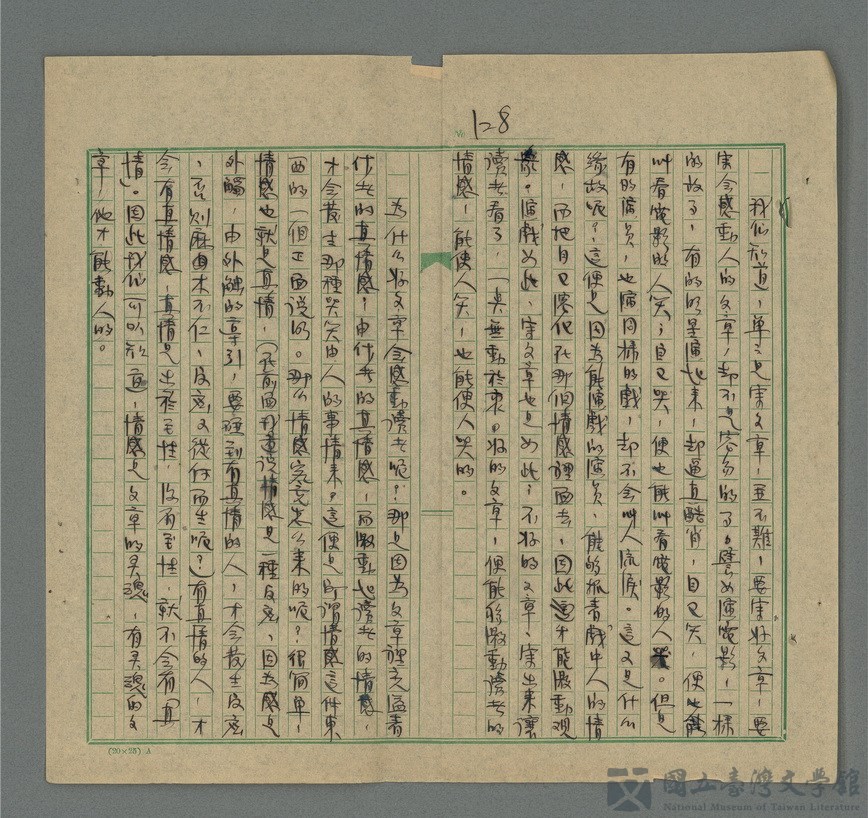 128
我们知道，单单是寫文章，並不難，要寫好文章，要
寫会感動人的文章，却不是容易的了。譬如演電影，一樣
的故事，有的明星演起来，却逼真酷肖，自己笑，便能
叫看電影的人笑；自己哭，便也能叫看電影的人哭。但是
有的演員，也演同樣的戲，却不会叫人流淚。這又是什么
緣故呢？這便是因為能演戲的演員，能的把戲中人的情
感，而把自己溶化在那個情感裡面去，因此才能激動观
眾。演戲如此，寫文章也是如此；不好的文章，寫出来讓
讀者看了，一点無動於衷。好的文章，便能够激動讀者的
情感，能使人笑，也能使人哭的。
為什么好文章会感動讀者呢？那是因為文章裡充溢着
作者的真情感，由作者的真情感，而激動起讀者的情感，
才会發生那種哭笑由人的事情来。這便是所謂情感這件東
西的一個正面說明。那么情感究竟怎么来的呢？很简单，
情感也就是真情，（在前面我曾说情感是一種反应，因為感是
外觸，由外触的牽引，要碰到有真情的人，才会發生反应
，否則麻由木不仁，反应又從何而生呢？）有真情的人，才
会有真情感，真情是出於至性，没有至性，就不会有「真
情」。因此我们可以知道，情感是文章的灵魂，有灵魂的文
章，他才能動人的。
(20×25) A
國立臺灣文學館
National Museum of Taiwan Literature